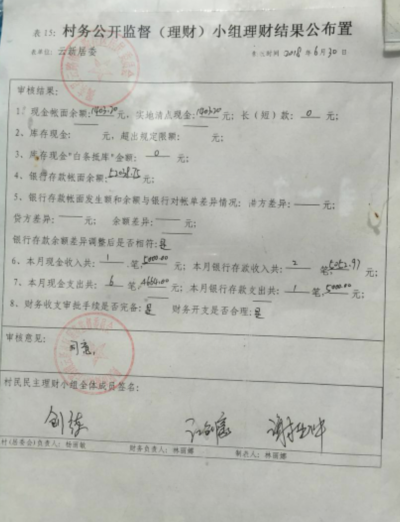 表15: 村务公开监督（理财）小组理财结果公布置
表单位: 云敢居委 公布时间 2018年6月30日
审核结果:
1、现金帐面余额: 1403.20元, 实地清点现金: 1403.20元; 长（短）款: 0元;
2、库存现金: 元, 超出规定限额: 元;
3、库存现金"白条抵库"金额: 0元;
4、银行存款帐面余额: 元;
5、银行存款帐面发生额和余额与银行对帐单差异情况: 借方差异: 元;
贷方差异: 元; 余额差异: 元;
银行存款余额差异调整后是否相符: 是
6、本月现金收入共: 1笔, 5000.00元; 本月银行存款收入共: 2笔, 5052.97元;
7、本月现金支出共: 6笔, 4660.00元; 本月银行存款支出共: 1笔, 5000.00元;
8、财务收支审批手续是否完备: 是 财务开支是否合理: 是
审核意见:
同意.
村民民主理财小组全体成员签名:
村(居委会)负责人: 财务负责人: 林丽娜 制表人: 林丽娜